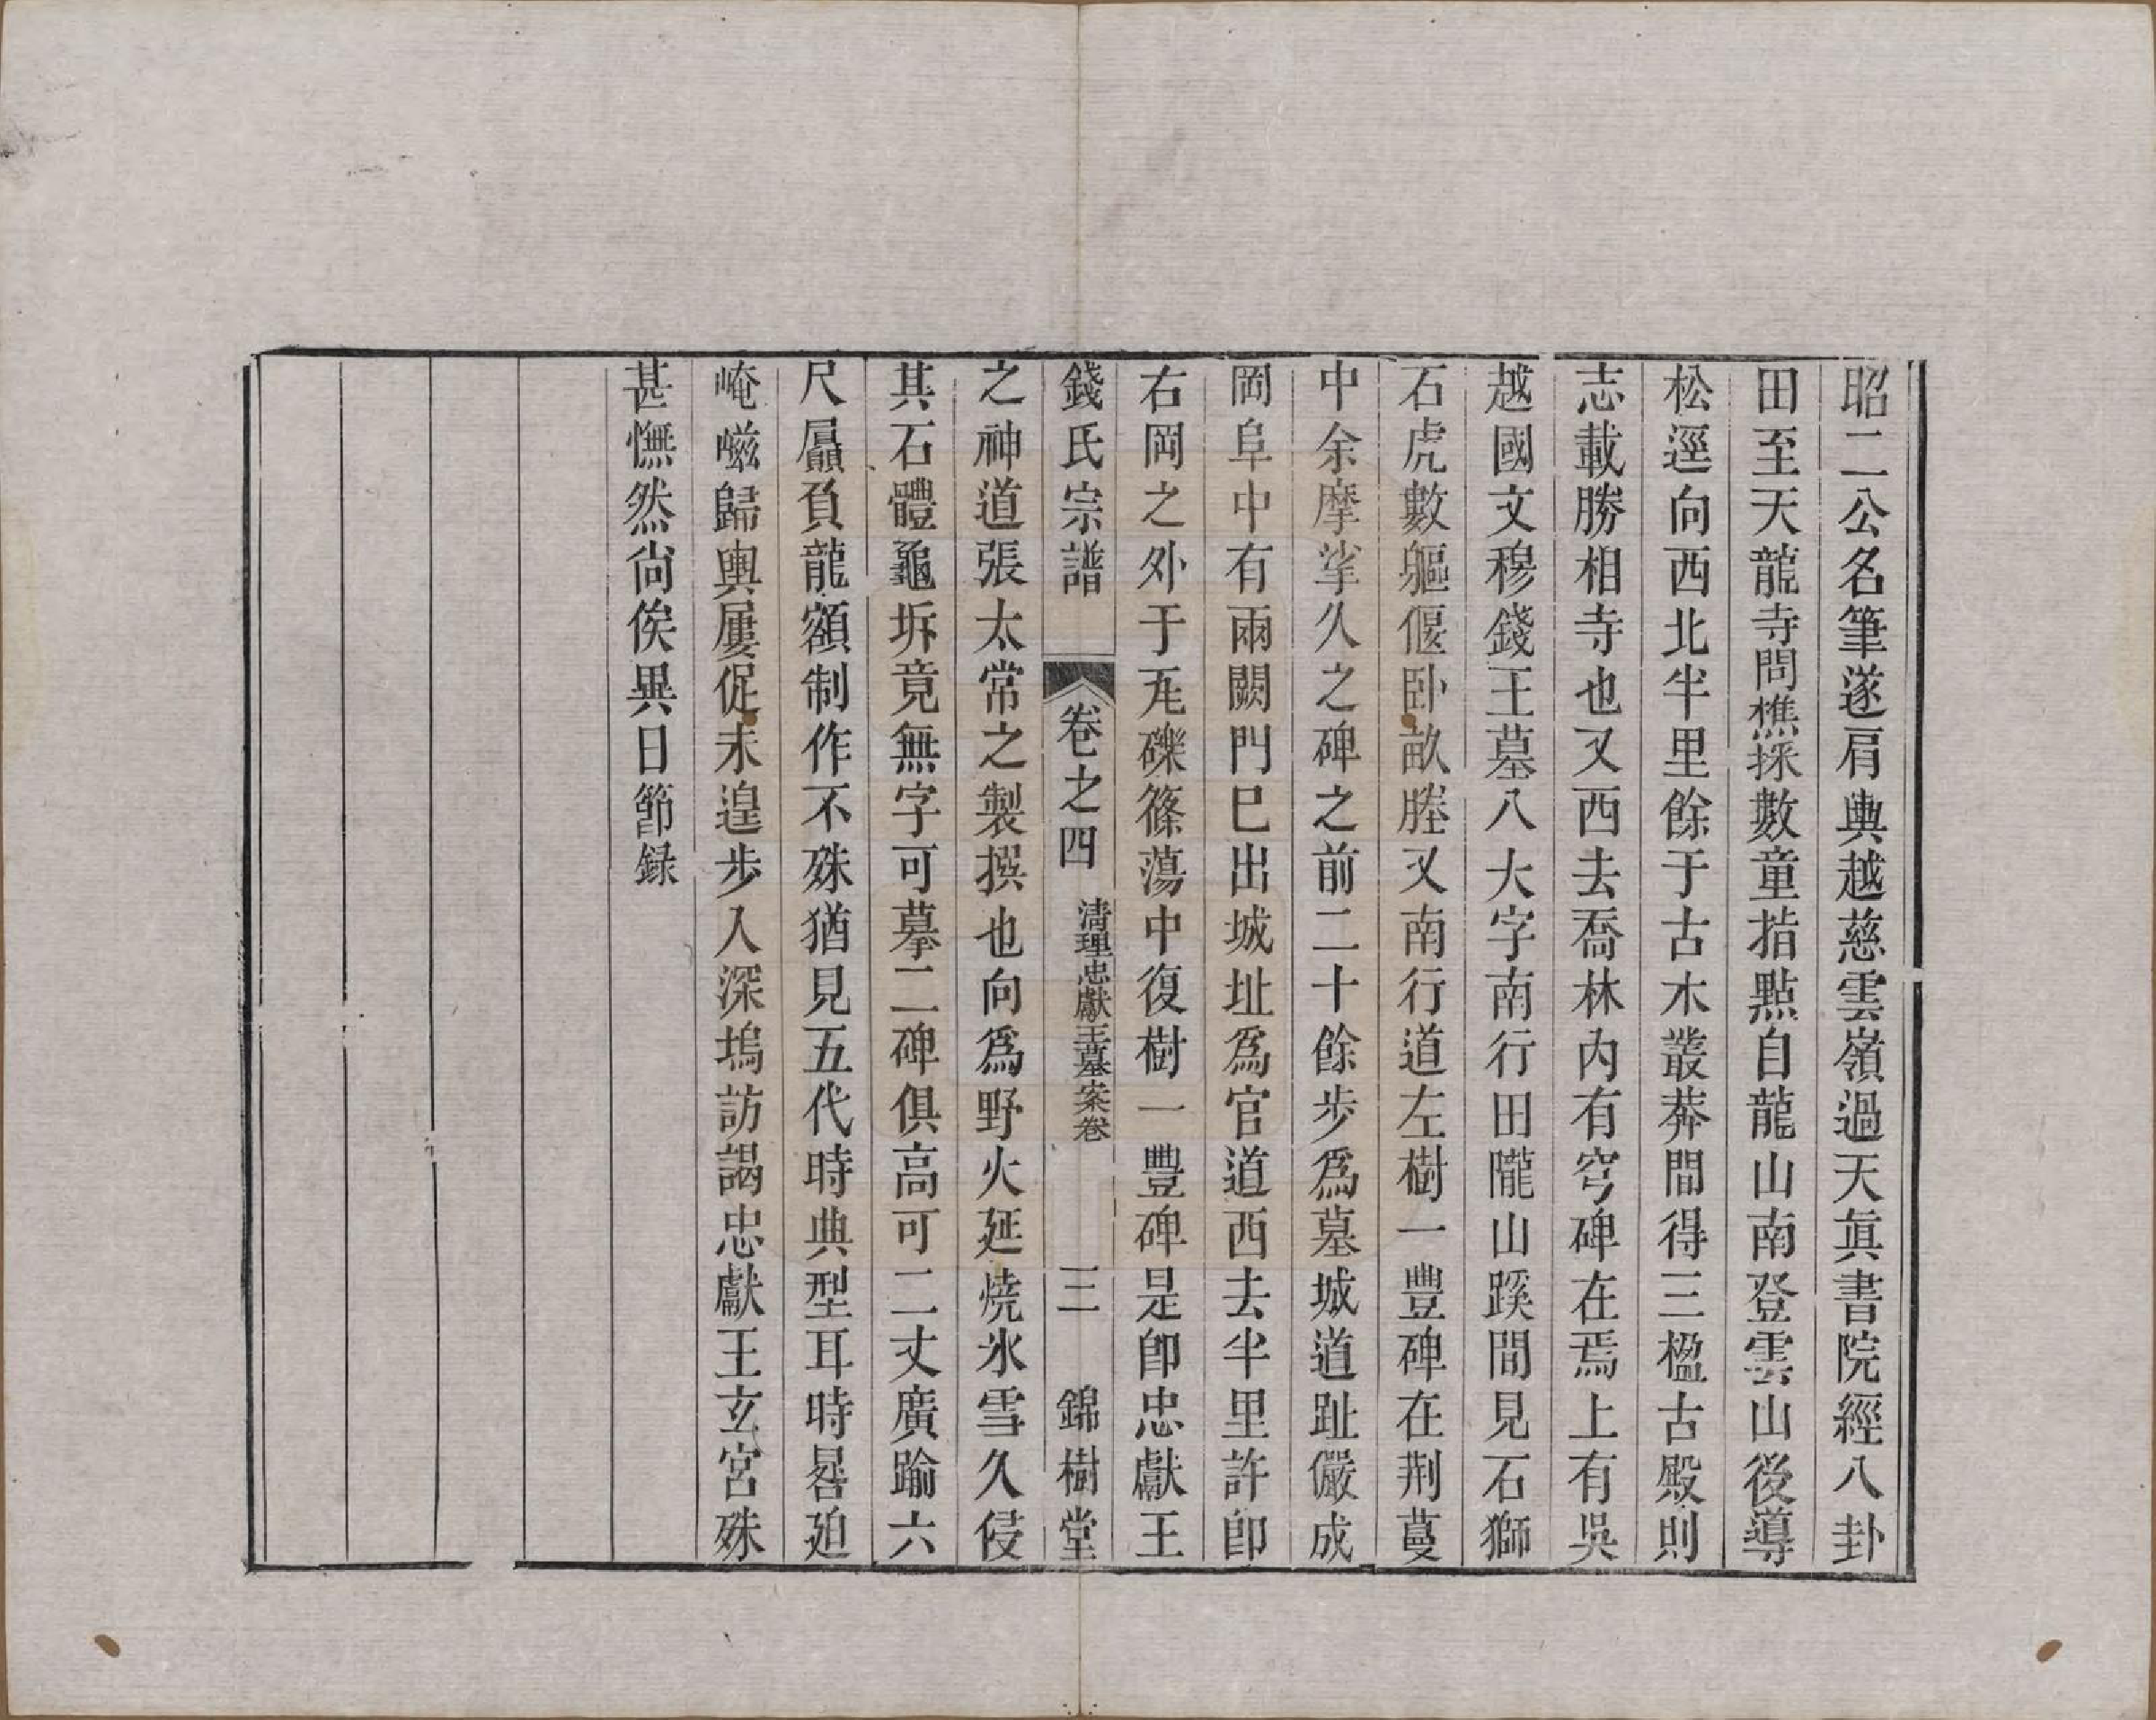 昭二公名筆遂肩輿越慈雲嶺過天眞書院經八卦
田至天龍寺問樵採數童指點自龍山南登雲山後導
松逕向西北半里餘于古木叢莽間得三楹古殿則
志載勝相寺也又西去喬林內有穹碑在焉上有吳
越國文穆錢王墓八大字南行田隴山蹊間見石獅
石虎數軀偃卧畝塍又南行道左樹一豐碑在荆蔓
中余摩挲久之碑之前二十餘步爲墓城道趾儼成
岡阜中有兩闕門巳出城址爲官道西去半里許卽
右岡之外于瓦礫篠蕩中復樹一豐碑是卽忠獻王
錢氏宗譜 卷之四 淸理忠獻王墓案卷 三 錦樹堂
之神道張太常之製撰也向爲野火延燒氷雪久侵
其石體龜坼竟無字可摹二碑俱高可二丈廣踰六
尺贔負龍額制作不殊猶見五代時典型耳時晷廹
崦嵫歸輿屢促未遑步入深塢訪謁忠獻王玄宮殊
甚憮然尙俟異日節録